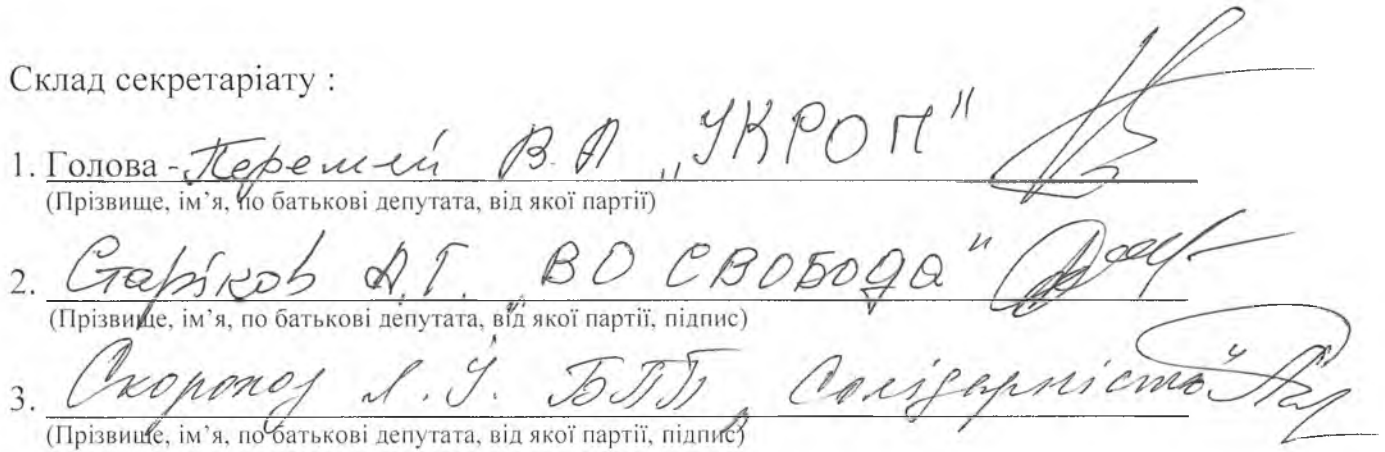 Склад секретаріату :
1. Голова - Перемей В.А „УКРОП"
(Прізвище, ім’я, по батькові депутата, від якої партії)
2. Старіков А.Г. „ВО СВОБОДА"
(Прізвище, ім’я, по батькові депутата, від якої партії, підпис)
3. Скороход Л.У. БПП „Солідарність"
(Прізвище, ім’я, по батькові депутата, від якої партії, підпис)